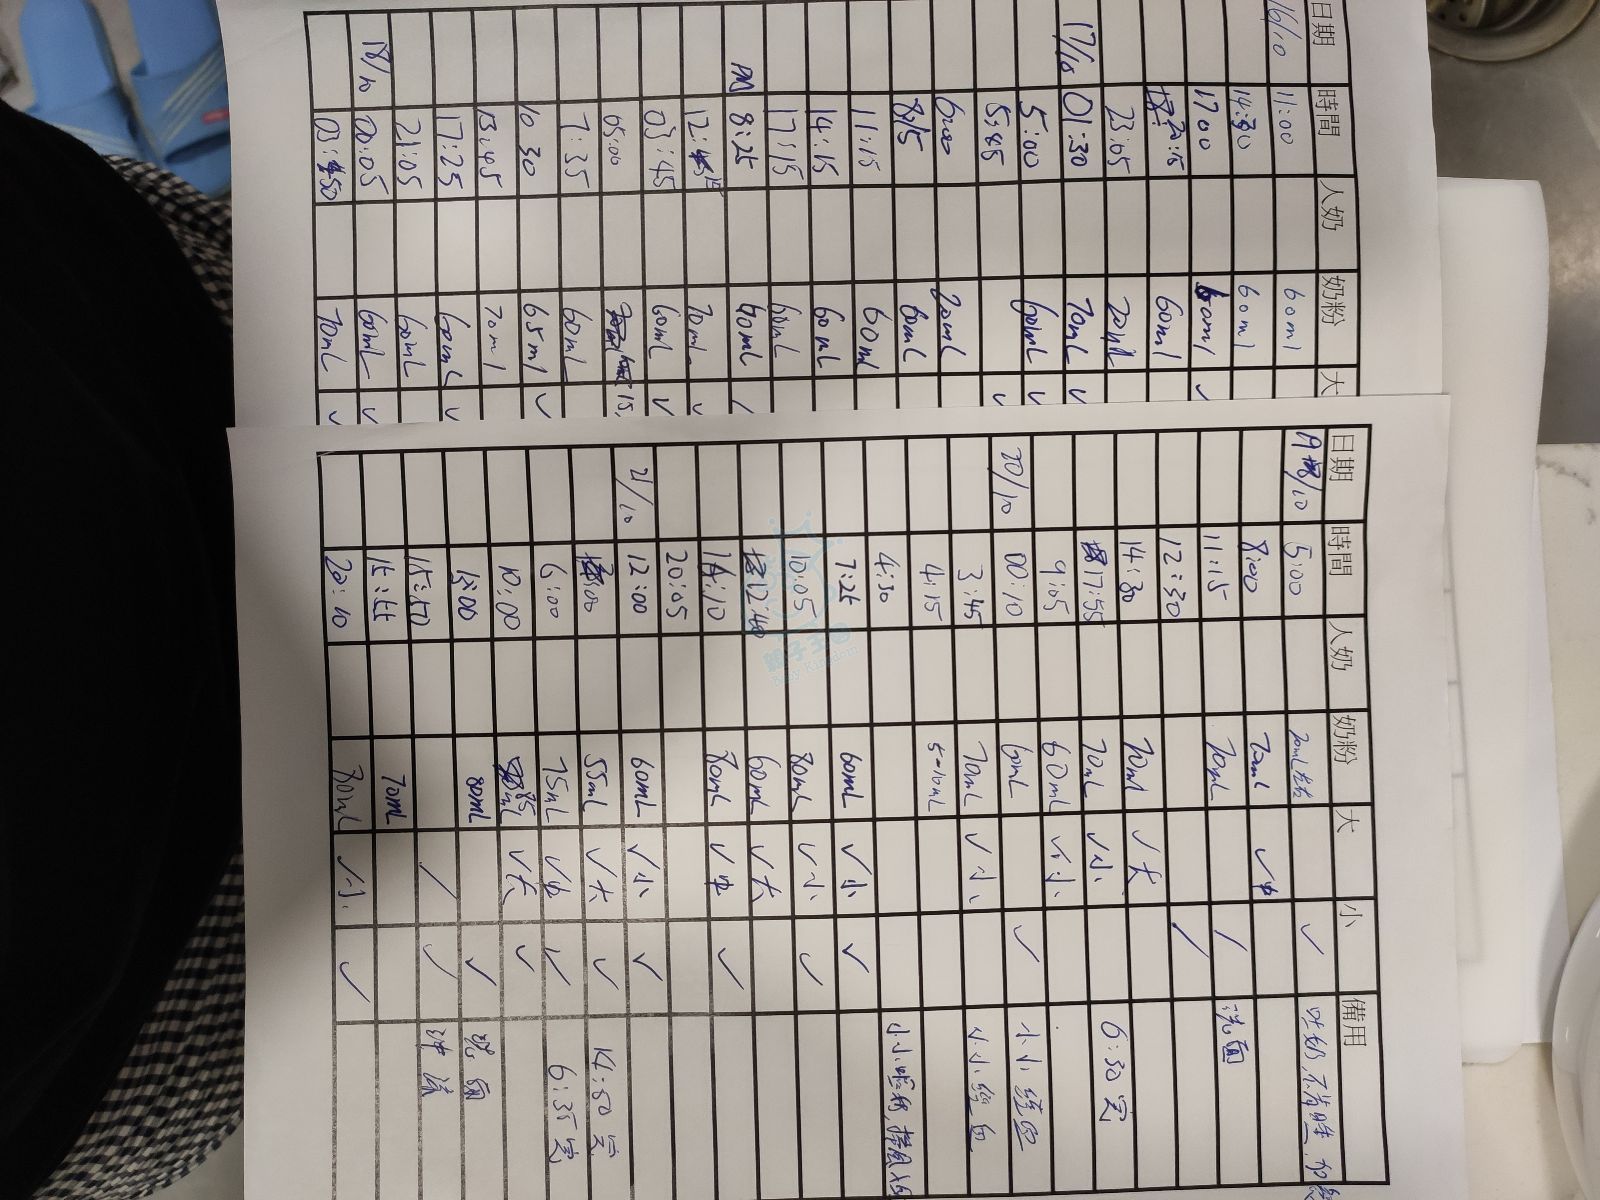 日期 時間 人奶 奶粉 大
16/10 11:00 60ml
14:30 60ml
17 00 60ml ✓
20:15 60ml
23:05 70ml
17/10 01:30 70mL ✓
5:00 60mL ✓
5:45 ✓
6:00 20mL
8:15 60mL
11:15 60mL
14:15 60mL
17:15 60mL
8:25 60mL
12:15 70mL ✓
03:45 60mL ✓
05:00 15
7:35 60mL
10 30 65ml ✓
13:45 70ml
17:25 60mL ✓
21:05 60mL
18/10 00:05 60mL ✓
03:50 70mL ✓
日期 時間 人奶 奶粉 大 小 備用
19/10 5:00 70mL ✓ 吐奶
8:00 70mL ✓中
11:15 70mL / 洗面
12:30 /
14:30 70ml ✓大
17:55 70mL ✓小 6:30完
9:05 60mL ✓小
20/10 00:10 60mL ✓ 小小
3:45 70mL ✓小 小小
4:15 5-10mL
4:30 小小
7:25 60mL ✓小 ✓
10:05 80mL ✓小 ✓
12:40 60mL ✓大
16:10 80mL ✓中 ✓
20:05
21/10 12:00 60mL ✓小 ✓
:00 55mL ✓大 ✓ 14:50完
6:00 75mL ✓中 ✓ 6:35完
10:00 85mL ✓大 ✓
15:00 80mL ✓ 洗面
15:50 / /
70mL
20:10 80mL ✓小 ✓
親子王國
Baby Kingdom